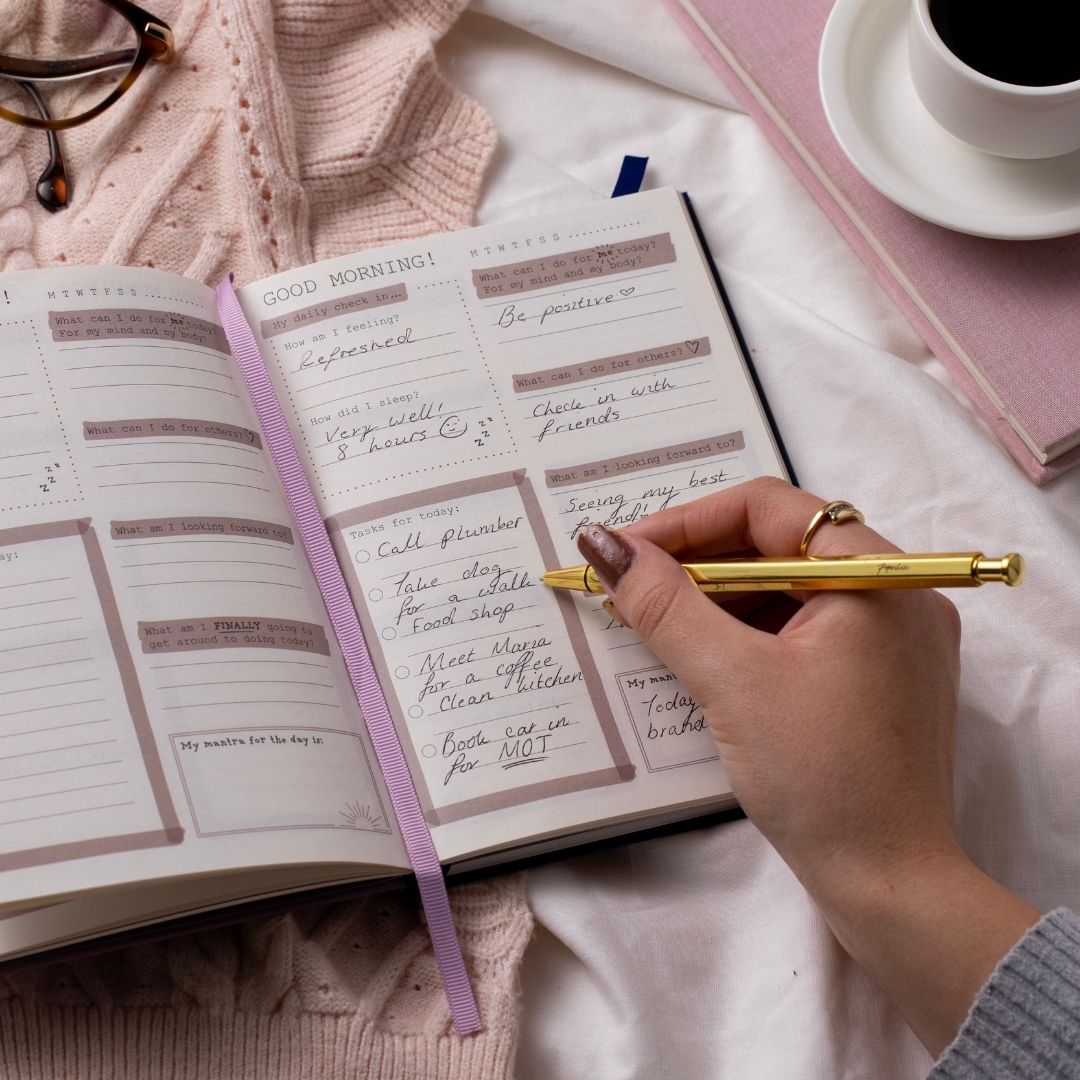 !
M T W T F S S ..........
What can I do for me today?
For my mind and my body?
What can I do for others?
z z
z z
z z
What am I looking forward to?
ay:
What am I FINALLY going to
get around to doing today?
My mantra for the day is:
GOOD MORNING!
My daily check in...
How am I feeling?
Refreshed
How did I sleep?
Very well!
8 hours
z z
z z
z z
Tasks for today:
Call plumber
Take dog
for a walk
Food shop
Meet Maria
for a coffee
Clean kitchen
Book car in
for MOT
M T W T F S S ..........
What can I do for me today?
For my mind and my body?
Be positive
What can I do for others?
Check in with
friends
What am I looking forward to?
Seeing my best
friend!
My mant
Today
brand